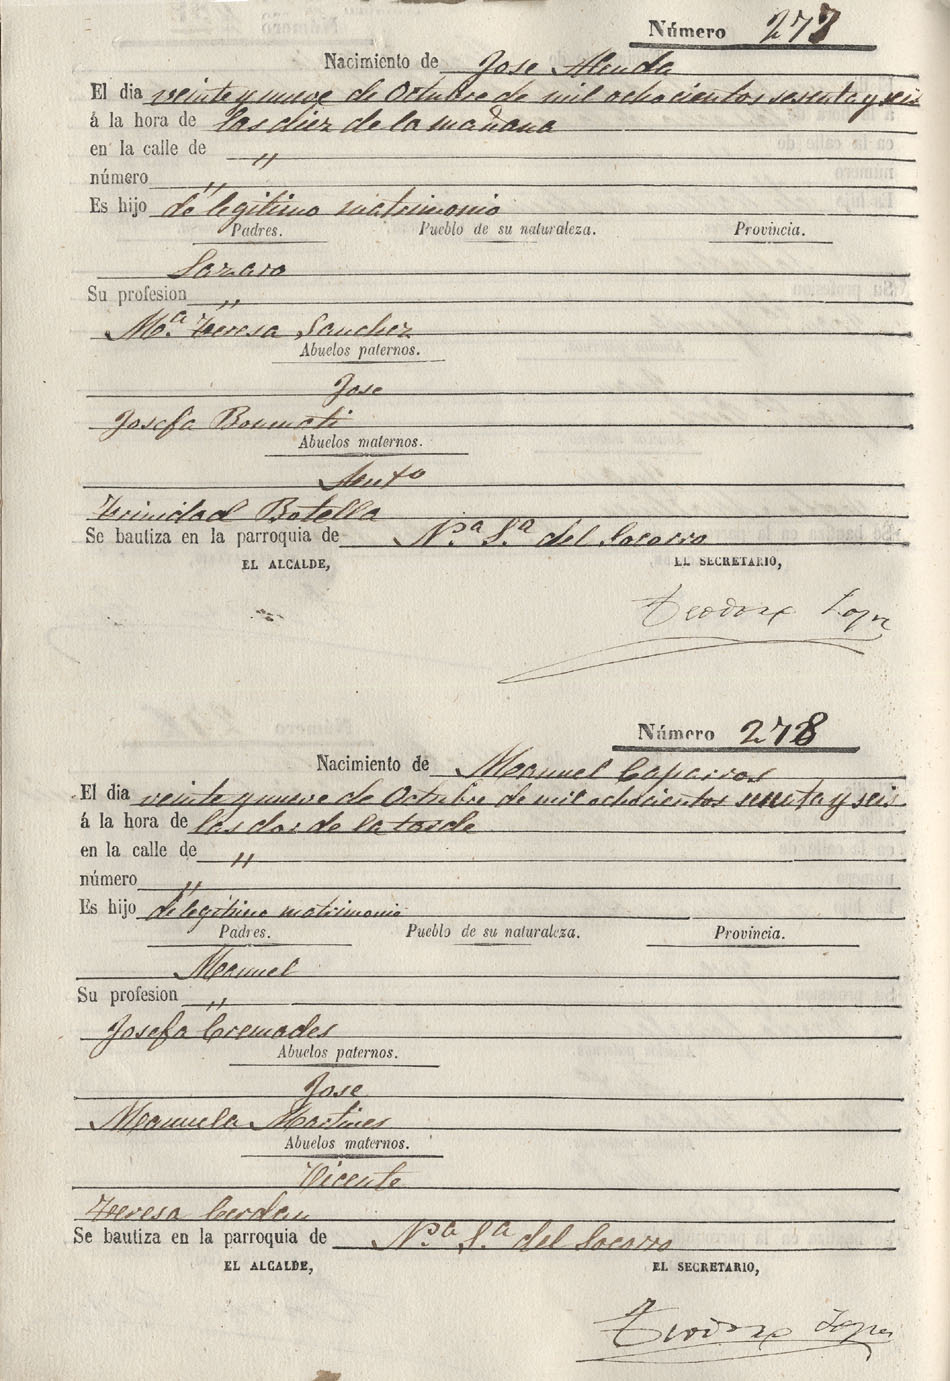 Número 277
Nacimiento de Jose Alenda
El dia veinte y nueve de Octubre de mil ochocientos sesenta y seis
á la hora de las diez de la mañana
en la calle de "
número "
Es hijo de legitimo matrimonio
Padres. Pueblo de su naturaleza. Provincia.
Lazaro
Su profesion "
Mª Teresa Sanchez
Abuelos paternos.
Jose
Josefa Boumati
Abuelos maternos.
Trinidad Botella
Se bautiza en la parroquia de N.ª S.ª del Socorro
EL ALCALDE, EL SECRETARIO,
Teodoro Lopez
Número 278
Nacimiento de Manuel Caparros
El dia veinte y nueve de Octubre de mil ochocientos sesenta y seis
á la hora de las dos de la tarde
en la calle de "
número "
Es hijo de legitimo matrimonio
Padres. Pueblo de su naturaleza. Provincia.
Manuel
Su profesion "
Josefa Cremades
Abuelos paternos.
Jose
Manuela Martines
Abuelos maternos.
Vicente
Teresa Cerdan
Se bautiza en la parroquia de N.ª S.ª del Socorro
EL ALCALDE, EL SECRETARIO,
Teodoro Lopez